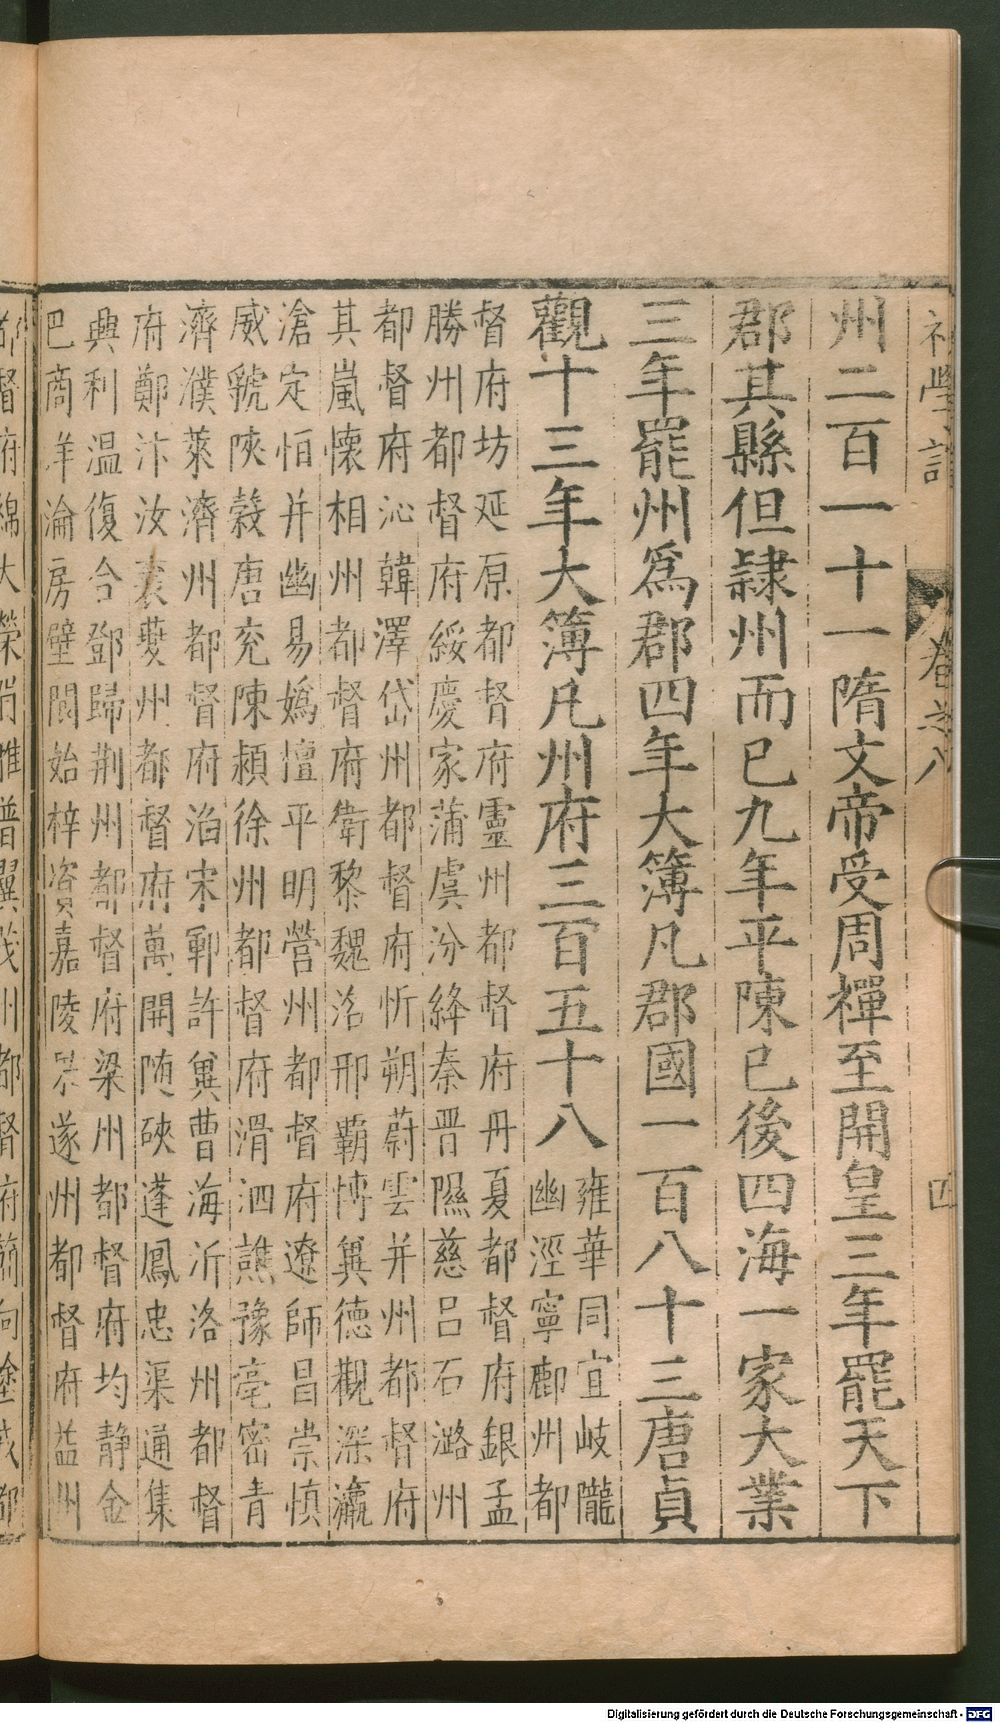 初學記 卷之八 四
州二百一十一隋文帝受周禪至開皇三年罷天下
郡其縣但隸州而已九年平陳已後四海一家大業
三年罷州爲郡四年大簿凡郡國一百八十三唐貞
觀十三年大簿凡州府三百五十八
雍華同宜岐隴
豳涇寧鄜州都
督府坊延原都督府靈州都督府丹夏都督府銀孟
勝州都督府綏慶家蒲虞汾絳秦晋隰慈呂石潞州
都督府沁韓澤岱州都督府忻朔蔚雲并州都督府
其嵐懷相州都督府衛黎魏洺邢霸博冀德觀深瀛
滄定恒并幽易嬀檀平明營州都督府遼師昌崇慎
威虢陝穀唐兖陳潁徐州都督府滑泗譙豫亳密青
濟濮萊濟州都督府淄宋鄆許冀曹海沂洛州都督
府鄭汴汝襄夔州都督府萬開随硤蓬鳳忠渠通集
興利温復合鄧歸荆州都督府梁州都督府均静金
巴商洋淪房壁閬始梓資嘉陵榮遂州都督府益州